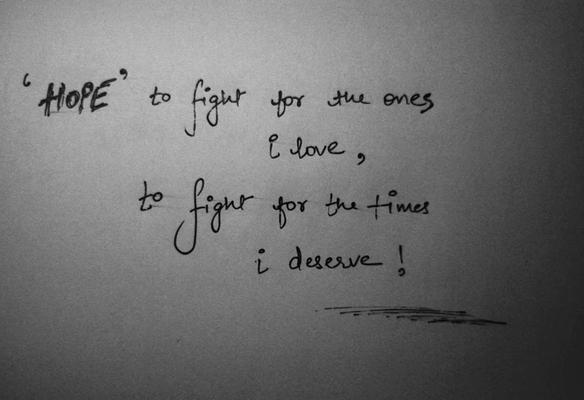 ‘HOPE’ to fight for the ones
i love,
to fight for the times
i deserve!